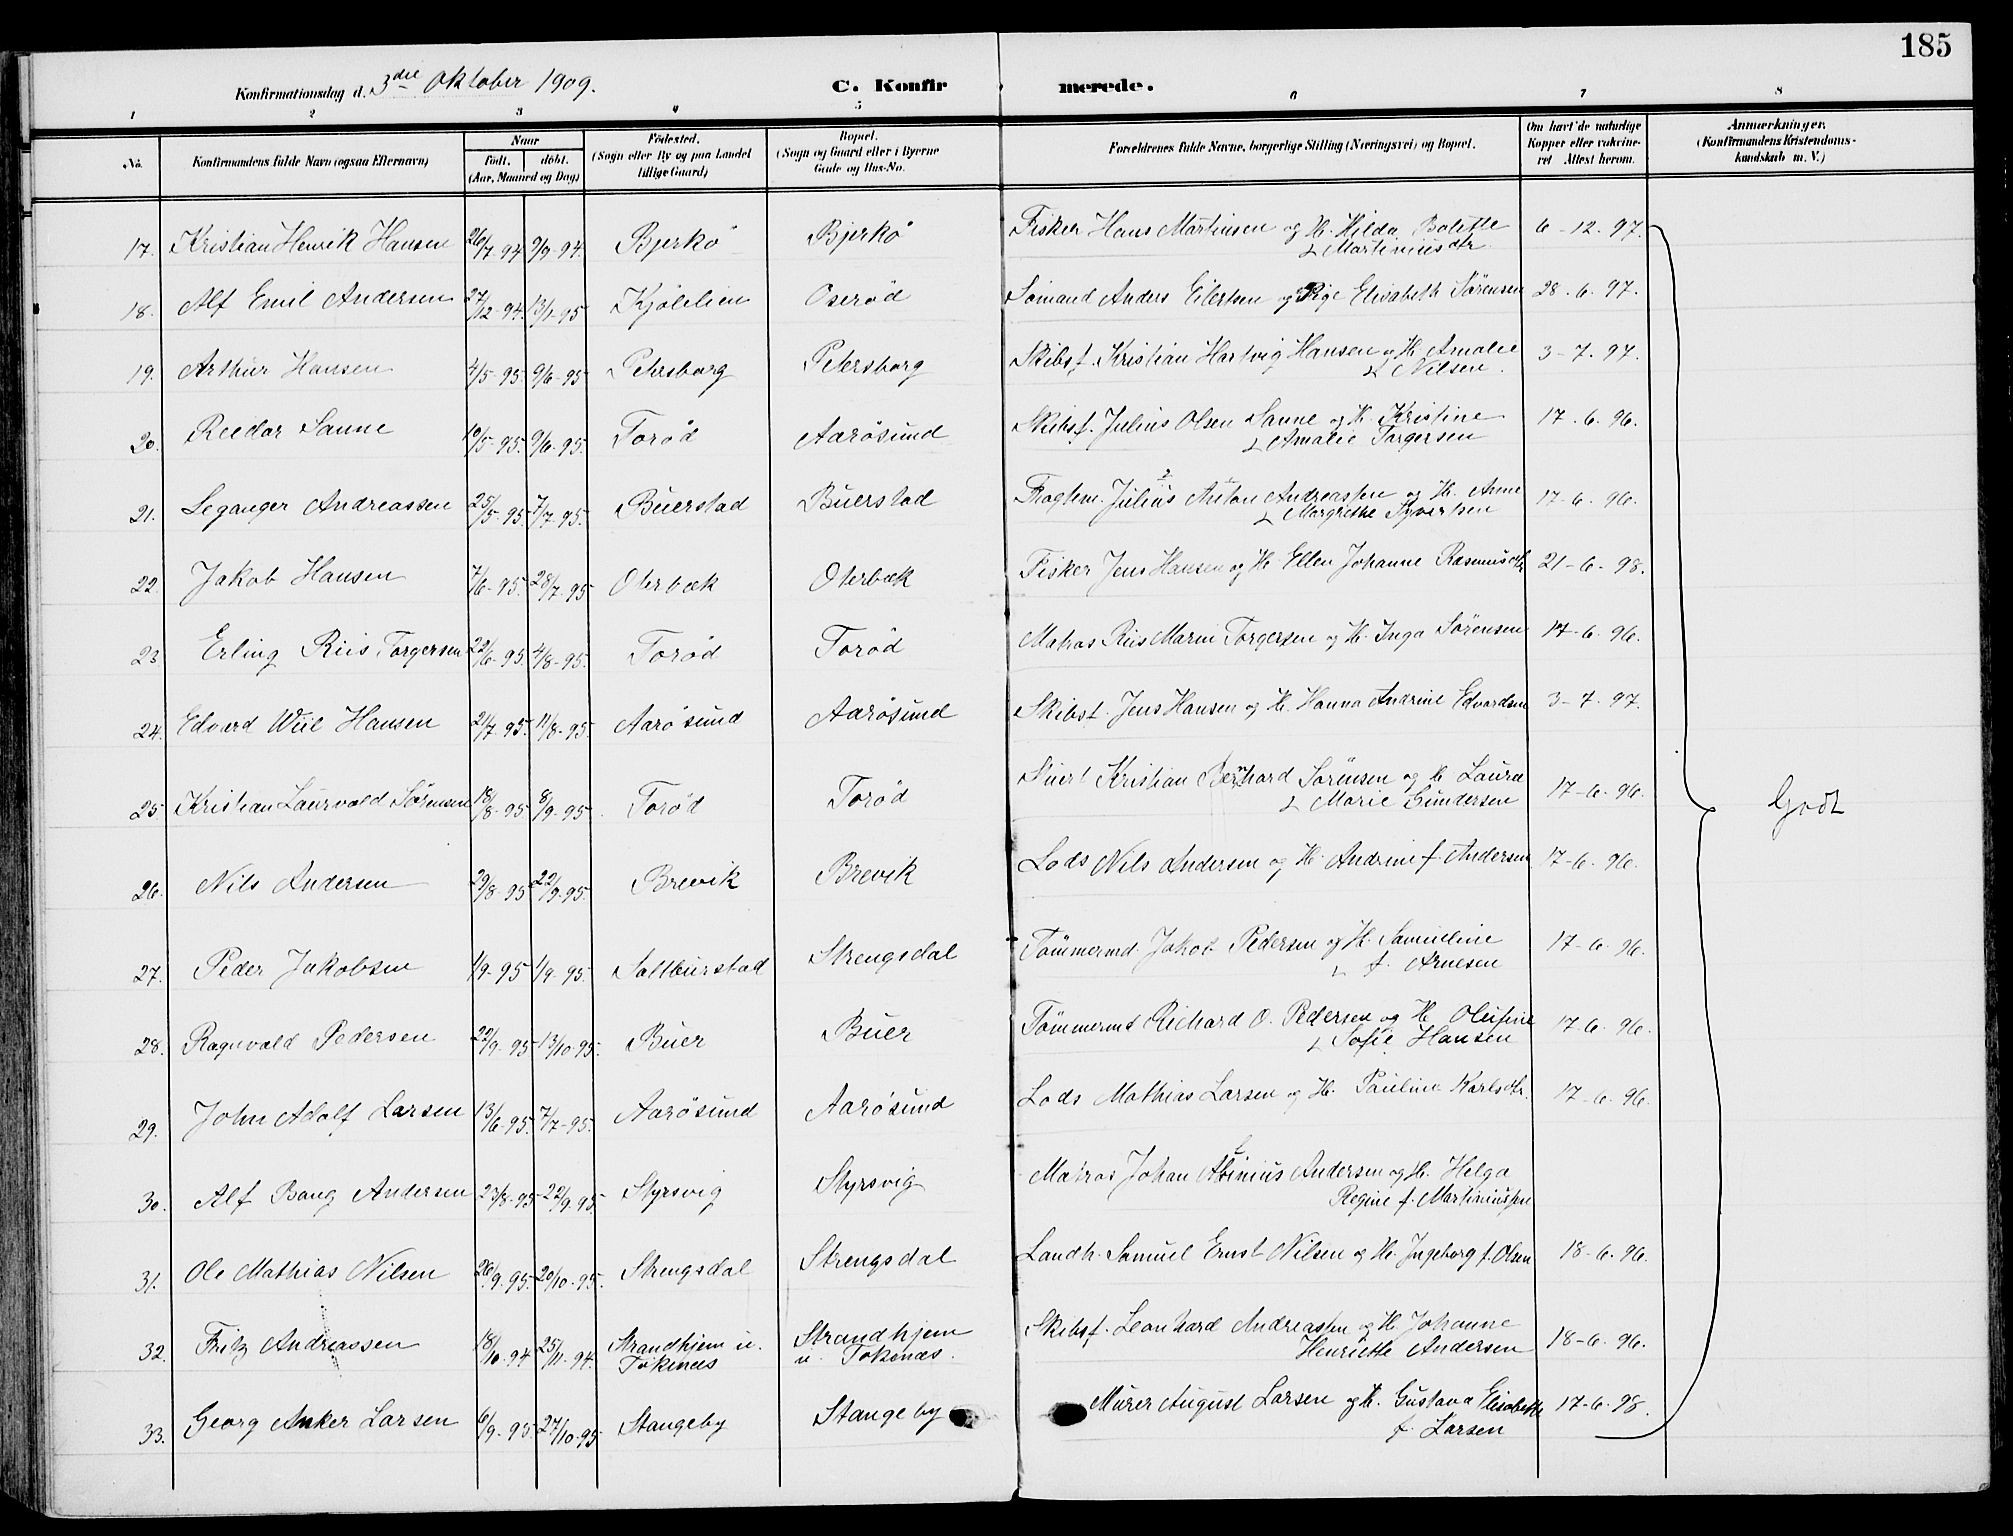 185
Konfirmationsdag d. 3die Oktober 1909. C. Konfirmerede.
1 2 3 4 5 6 7 8
No. Konfirmandens fulde Navn (ogsaa Efternavn) Naar født. døbt. (Aar, Maaned og Dag) Fødested. (Sogn eller By og paa Landet tillige Gaard) Bopæl. (Sogn og Gaard eller i Byerne Gade og Hus-No. Forældrenes fulde Navne, borgerlige Stilling (Næringsvei) og Bopæl. Om havt de naturlige Kopper eller vakcineret Attest herom. Anmærkninger. (Konfirmandens Kristendomskundskab m. V.)
17. Kristian Henrik Hansen 26/7-94 9/9-94. Bjerkø Bjerkø Fisker Hans Martinsen og H. Hilda Bolette 6-12.97.
Martiniusdtr.
18. Alf Emil Andersen 27/12-94. 13/1-95 Kjølelien Oserød Sömand Anders Eilertsen og Pige Elisabeth Sørensen 28.6.97.
19. Arthur Hansen 4/5-95. 9/6-95 Petersborg Petersborg Skibsf. Kristian Hartvig Hansen og H. Amalie 3-7.97.
Nilsen.
20. Reidar Sanne 10/5-95. 9/6-95. Torød Aarøsund Skibsf. Julius Olsen Sanne og H. Kristine 17.6.96.
Amalie Torgersen
21. Leganger Andreassen 25/5-95. 7/7-95. Buerstad Buerstad Fragtem. Julius Anton Andreassen og H. Anne 17-6.96.
Margrethe Syvertsen
22. Jakob Hansen 7/6-95. 28/7-95 Oterbæk Oterbæk Fisker Jens Hansen og H. Ellen Johanne Rasmusdtr 21-6-98.
23 Erling Riis Torgersen 22/6-95. 4/8-95. Torød Torød Matros Riis Marin Torgersen og H. Inga Sörensen 17-6.96.
24. Edvard Wiil Hansen 21/7-95. 11/8-95. Aarøsund Aarøsund Skibsf. Jens Hansen og H. Hanna Andrine Edvardsen 3-7.97.
25 Kristian Laurvald Sørensen 18/8-95 8/9-95. Torød Torød Stuert Kristian Bernhard Sørensen og H Laura 17-6.96.
Marie Gundersen
26. Nils Andersen 29/8-95 22/9-95. Brevik Brevik Lods Nils Andersen og H. Andrine f. Andersen 17-6.96.
27. Peder Jakobsen 1/9-95 1/9-95. Saltburstad Strengsdal Tömmermd. Jakob Pedersen og H. Samueline 17-6.96.
f. Arnesen
28. Ragnvald Pedersen 22/9-95 13/10-95. Buer Buer Tömmermd Richard O. Pedersen og H. Olufine 17-6.96.
Sofie Hansen
29. John Adolf Larsen 13/6-95. 7/7-95. Aarøsund Aarøsund Lods Mathias Larsen og H. Pauline Karlsdtr. 17-6.96.
30. Alf Bang Andersen 23/8-95 22/9.95. Styrsvig Styrsvig Matros Johan Albinius Andersen og H. Helga
Regine f. Martiniussen
31. Ole Mathias Nilsen 26/9.95. 20/10-95. Strengsdal Strengsdal Landh. Samuel Ernst Nilsen og H. Ingeborg f. Olsen 18-6.96.
32. Fritz Andreassen 18/10-94 25/11-94. Strandhjem u. Strandhjem Skibsf. Leonhard Andreassen og H. Johanne 18-6.96.
Tokenæs u. Tokenæs. Henriette Andersen
33. Georg Anker Larsen 6/9-95. 27/10-95 Stangeby Stangeby Murer August Larsen og H. Gustava Elisabethe 17-6.98.
f. Larsen
Godt